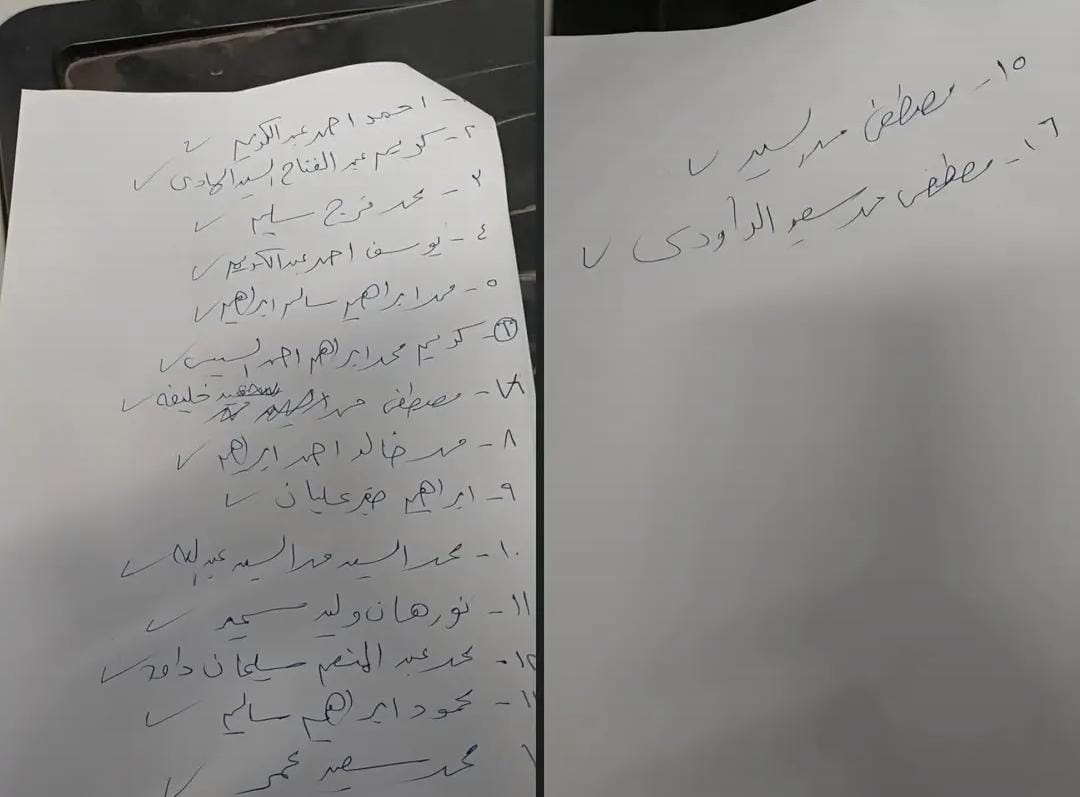 ١- احمد احمد عبدالكريم
٢- كريم عبد الفتاح السيد الهادى
٣- محمد فرج سليم
٤- يوسف احمد عبدالكريم
٥- محمد ابراهيم سالم ابراهيم
٦- كريم محمد ابراهيم احمد السيد
٧- مصطفى محمد خليفه
٨- محمد خالد احمد ابراهيم
٩- ابراهيم صقر عليان
١٠- محمد السيد محمد السيد عبدالله
١١- نورهان وليد سمير
١٢- محمد عبد المنعم سليمان
١٣- محمود ابراهيم سالم
١- محمد سعيد عمر
١٥- مصطفى محمد السيد
١٦- مصطفى محمد سعيد الداودى